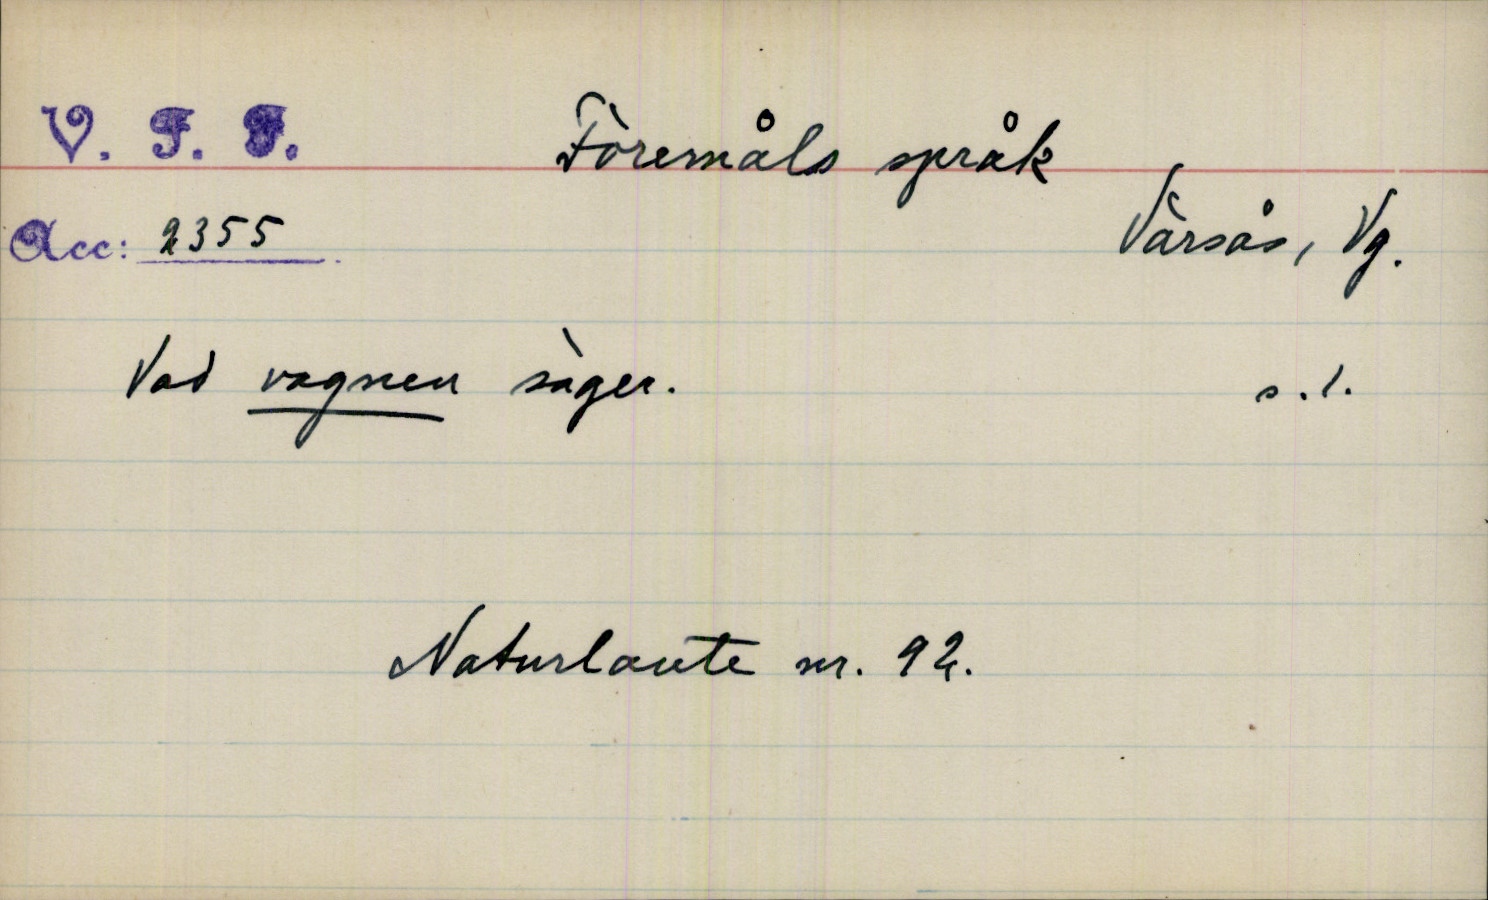 V. F. F. Föremåls språk
Acc: 2355 Värsås, Vg.
Vad vagnen säger. s. 1.
Naturlaute nr. 92.